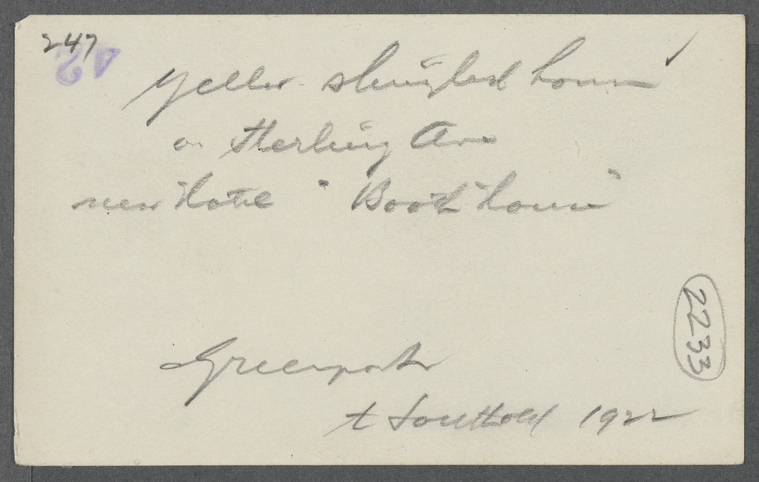 247
42
Yellow shingled house
on Sterling Ave
near hotel "Booth house"
Greenport
t Southold 1922
2233